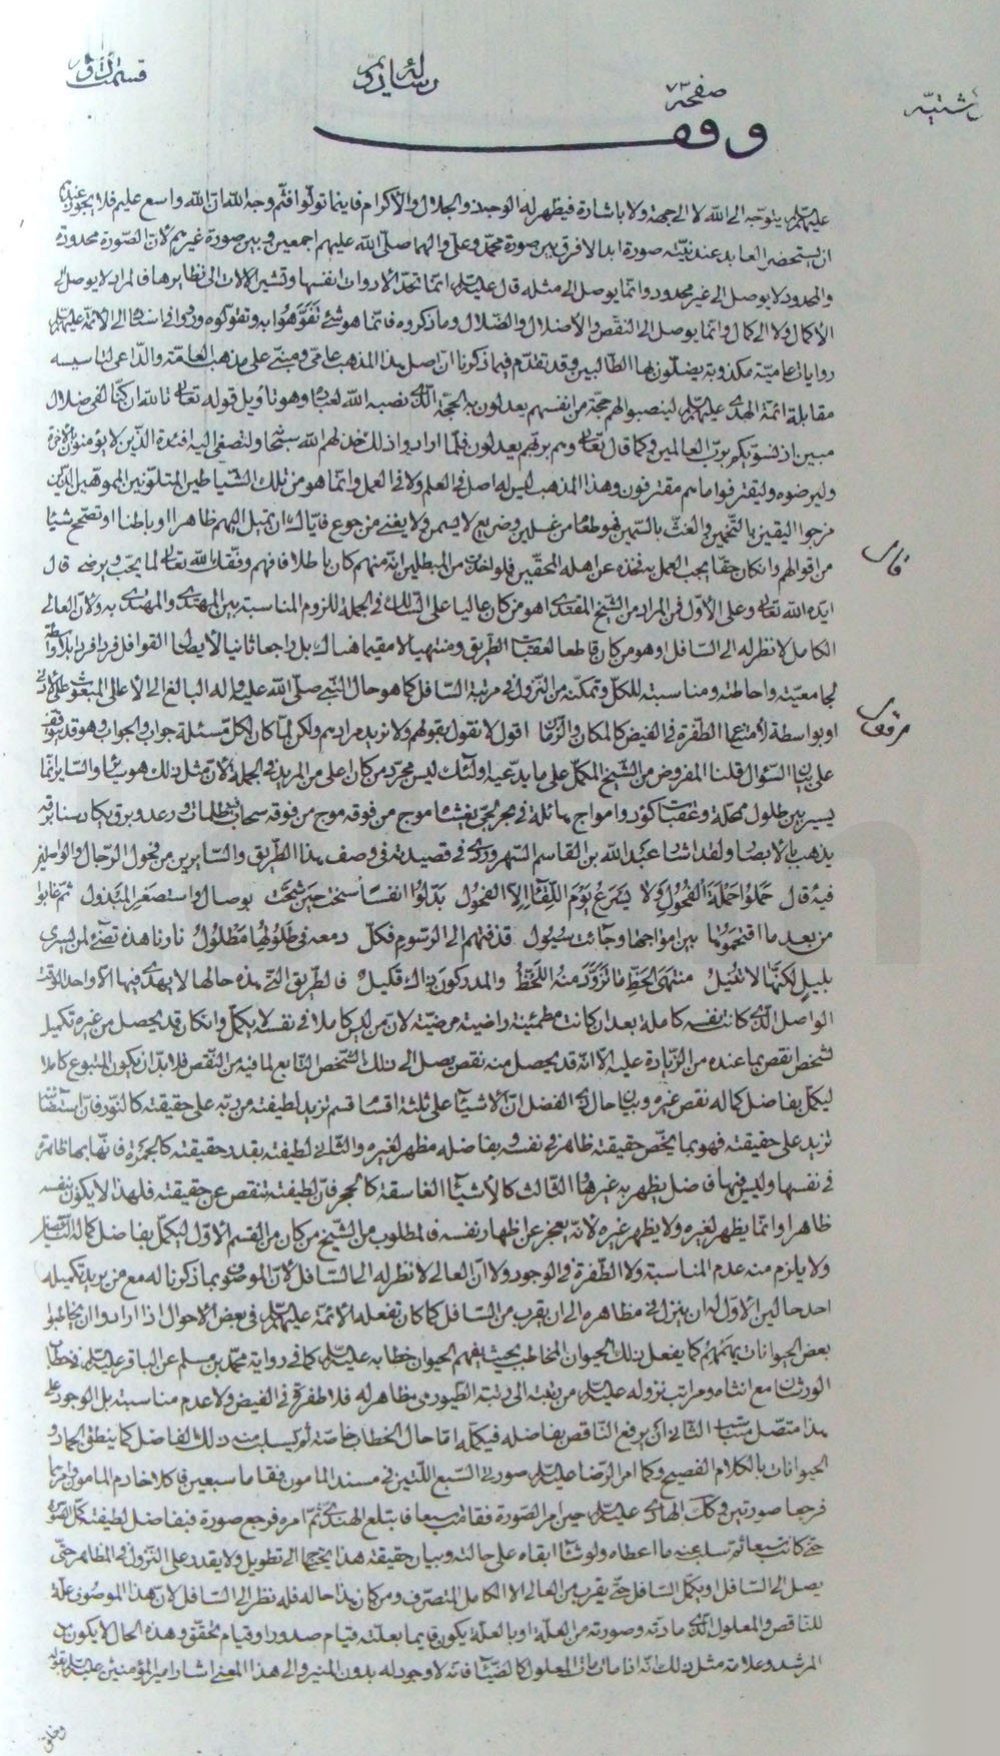 قسمت اول
رساله
صفحة ٧٣
وقف
عليهم يتوجه الى الله لا الى جهة ولا باشارة فيظهر له الوجه ذو الجلال والاكرام فاينما تولوا فثم وجه الله ان الله واسع عليم فلا يجوز
ان يستحضر العابد عند نيته صورة ابدا لا فرق بين صورة محمد وعلي والهما صلى الله عليهم اجمعين وبين صورة غيرهم لان الصورة محدودة
والمحدود لا يوصل الى غير محدود وانما يوصل الى مثله قال عليه السلام انما تحد الادوات انفسها وتشير الالات الى نظايرها فالمراد لا يوصل الى
الاكمال ولا الى كمال وانما يوصل الى النقص والاضلال والضلال وما ذكروه فانما هو شئ تفوهوا به وتقولوه ورووا في اسناده الى الائمة عليهم
روايات عامية مكذوبة يضلون بها الطالبين وقد تقدم فيما ذكرنا ان اصل هذا المذهب عامي ومبني على مذهب العامة والداعي لتاسيسه
مقابلة ائمة الهدى عليهم لينصبوا لهم حجة من انفسهم يعدلون به الحجة الذي نصبه الله لعباده وهو تاويل قوله تعالى تالله ان كنا لفي ضلال
مبين اذ نسويكم برب العالمين وكما قال تعالى وهم بربهم يعدلون فلما ارادوا ذلك خذلهم الله سبحانه ولتصغى اليه افئدة الذين لا يؤمنون بالاخرة
وليرضوه وليقترفوا ما هم مقترفون وهذا المذهب ليس له اصل في العلم ولا في العمل وانما هو من تلك الشياطين المتلونين المموهين الذين
مزجوا اليقين بالتخمين والغث بالسمين فهو طعام من غسلين وضريع لا يسمن ولا يغني من جوع فاياك ان تميل اليهم ظاهرا او باطنا او تصحح شيئا
من اقوالهم وان كان حقا يجب العمل به فخذه عن اهله المحقين فلو اخذته من المبطلين انه منهم كان باطلا فافهم وفقك الله تعالى لما يحب ويرضى قال
ايده الله تعالى وعلى الاول فمن المراد من الشيخ المقتدى اهو من كان عاليا على السالك في الجملة للزوم المناسبة بين المهتدي والمهتدى به ولان العالي
الكامل لا نظر له الى السافل او هو من كان قاطعا لعقبات الطريق ومنتهيا لا مقيما هناك بل راجعا ثانيا لايصال القوافل فردا فردا بلا واسطة
لجامعيته واحاطته ومناسبته للكل وتمكنه من النزول في مرتبة السافل كما هو حال النبي صلى الله عليه واله البالغ الى الاعالي المبعوث على الاداني
او بواسطة لامتناع الطفرة في الفيض كالمكان والزمان اقول لا نقول بقولهم ولا نريد مرادهم ولكن لما كان لكل مسئلة جواب والجواب هو قد يتوقف
على بيان السؤال قلنا المفروض من الشيخ المكمل على ما يدعيه اولئك ليس مجرد من كان اعلى من المريد في الجملة لان مثل ذلك هو سائر والسائر انما
يسير بين طلول ممحلة وعقبات كؤد وامواج هائلة في بحر لجي يغشاه موج من فوقه موج من فوقه سحاب فيه ظلمات ورعد وبرق يكاد سنا برقه
يذهب بالابصار ولقد انشا عبد الله بن القاسم السهروردي في قصيدته في وصف هذا الطريق والسايرين من فحول الرجال والواصلين
فيه قال حملوا حملة الفحول ولا يصرع يوم اللقاء الا الفحول بذلوا انفسا سخت حين شحت بوصال واستصغر المبذول ثم غابوا
من بعد ما اقتحموها بين امواجها وجاءت سيول قذفتهم الى الرسوم فكل دمعه في طلولها مطلول نارنا هذه تضئ لمن يسري
بليل لكنها لا تنيل منتهى الحظ ما تزود منه اللحظ والمدركون ذاك قليل فالطريق التي هذه حالها لا يهتدي فيها الا واحد الوقت
الواصل الذي كانت نفسه كاملة بعد ان كانت مطمئنة راضية مرضية لان من لم يكن كاملا في نفسه لا يكمل وان كان قد يحصل من غيره تكميل
لشخص انقص بما عنده من الزيادة عليه الا انه قد يحصل منه نقص يصل الى ذلك الشخص التابع لما فيه من النقص فلا بد ان يكون المتبوع كاملا
ليكمل بفاضل كماله نقص غيره وبيان حال ذي الفضل ان الاشياء على ثلثة اقسام قسم تزيد لطيفته من ربه على حقيقته كالنور فان استضائته
تزيد على حقيقته فهو بما يخص حقيقته ظاهر في نفسه وبفاضله مظهر لغيره والثاني لطيفته بقدر حقيقته كالجمرة فانها بها ظاهرة
في نفسها وليس فيها فاضل يظهر به غيرها الثالث كالاشياء الغاسقة كالحجر فان لطيفته تنقص عن حقيقته فلهذا لا يكون بنفسه
ظاهرا وانما يظهر لغيره ولا يظهر غيره لانه يعجز عن اظهار نفسه فالمطلوب من الشيخ من كان من القسم الاول ليكمل بفاضل كماله
ولا يلزم منه عدم المناسبة ولا الطفرة في الوجود ولا ان العالي لا نظر له الى السافل لان الموصوف بما ذكرنا له مع من يريد تكميله
احد حالين الاول له ان ينزل في مظاهره الى ان يقرب من السافل كما كان تفعله الائمة عليهم في بعض الاحوال اذا ارادوا ان يخاطبوا
بعض الحيوانات يهمهم كما يفعل ذلك الحيوان المخاطب بحيث يفهم الحيوان خطابه عليه كما في رواية محمد بن مسلم عن الباقر عليه في خطاب
الورشان مع انثاه ومراتب نزوله عليه من رتبته الى رتبة الطيور هي مظاهر له فلا طفرة في الفيض ولا عدم مناسبة بل الوجود على
هذا متصل متناسب الثاني ان يرفع الناقص بفاضله فيكمله اما حال الخطاب خاصة ثم يسلب منه ذلك الفاضل كما ينطق الجماد و
الحيوانات بالكلام الفصيح وكما امر الرضا عليه صورتي السبع اللتين في مسند المامون فقاما سبعين فاكلا خادم المامون وامرهما
فرجعا صورتين وكذلك الهادي عليه حين امر الصورة فقامت سبعا فابتلع الهندي ثم امره فرجع صورة فبفاضل لطيفته كمل الصورة
حتى كانت سبعا ثم سلب عنه ما اعطاه ولو شاء ابقاه على حالته وبيان حقيقة هذا يحتاج الى تطويل ولا يقدر على النزول في المظاهر حتى
يصل الى السافل او يكمل السافل حتى يقرب من العالي الا الكامل المتصرف ومن كان هذا حاله فله نظر الى السافل لان هذا الموصوف علة
للناقص والمعلول الذي مادته وصورته من العلة او بالعلة يكون قايما بعلته قيام صدور او قيام تحقق وهذه الحال لا يكون
المرشد وعلامة مثل ذلك انه اذا مات مات المعلول كالضياء فانه لا وجود له بدون المنير والى هذا المعنى اشار امير المؤمنين عليه بقوله
وخلق